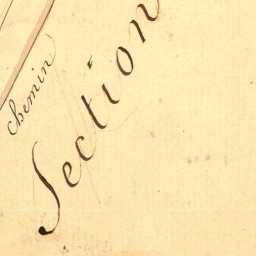 chemin
Section